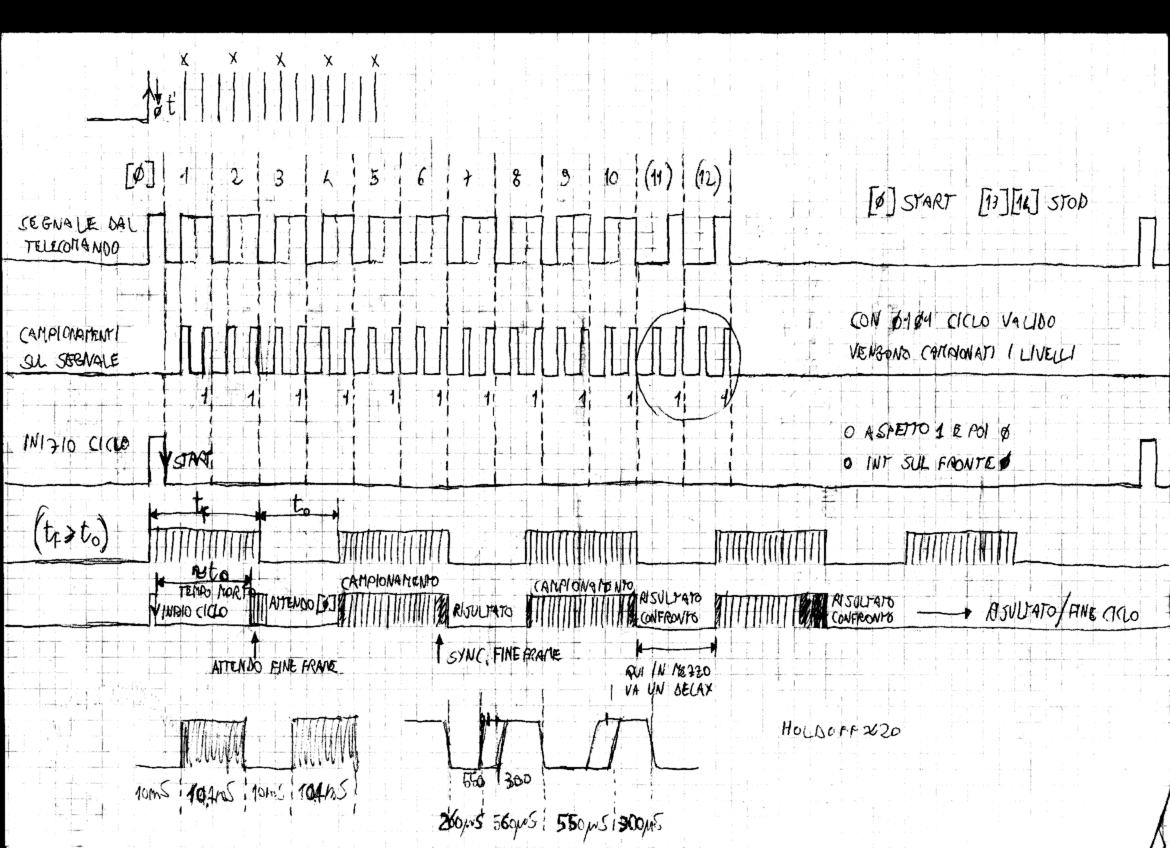 x x x x x
ø t
[ø] 1 2 3 4 5 6 7 8 9 10 (11) (12)
[ø] START [13][14] STOP
SEGNALE DAL
TELECOMANDO
CAMPIONAMENTI
SUL SEGNALE
CON ø1ø1 CICLO VALIDO
VENGONO CAMPIONATI I LIVELLI
1 1 1 1 1 1 1 1 1 1 1 1
INIZIO CICLO
START
O ASPETTO 1 E POI ø
O INT SUL FRONTE
tF to
(tF ≥ to)
≈to
TEMPO MORTO
INIZIO CICLO
ATTENDO [ø]
CAMPIONAMENTO
RISULTATO
CAMPIONAMENTO
RISULTATO
CONFRONTO
RISULTATO
CONFRONTO
RISULTATO/FINE CICLO
ATTENDO FINE FRAME
SYNC. FINE FRAME
QUI IN MEZZO
VA UN DELAY
HOLDOFF
550 300
10mS 10mS
260µS 560µS 550µS 300µS